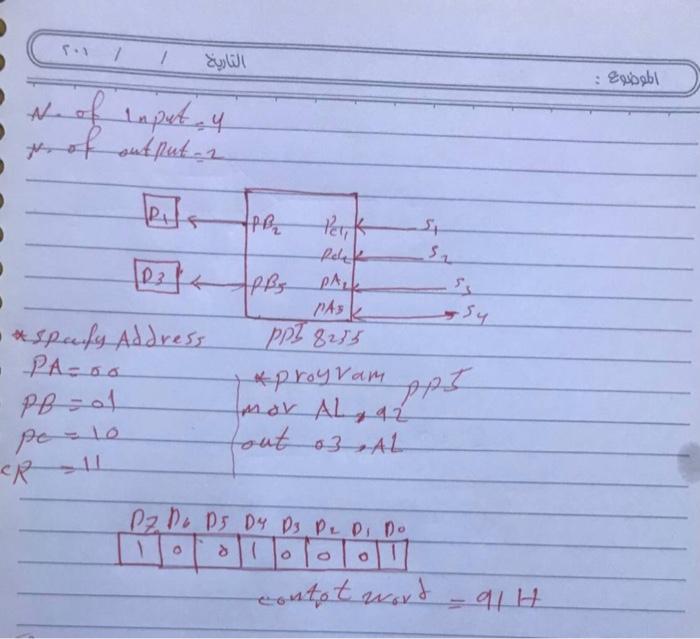 الموضوع :
التاريخ / / ٢٠١
N. of input = 4
N. of output = 2
D1 PB2 S1
S2
D3 PB5 PA2 S3
PA3 S4
PPI 8255
* Address
PA = 00
PB = 01
PC = 10
CR = 11
* program PPI
mov AL, 92
out 03, AL
D7 D6 D5 D4 D3 D2 D1 D0
1 0 0 1 0 0 0 1
word = 91H